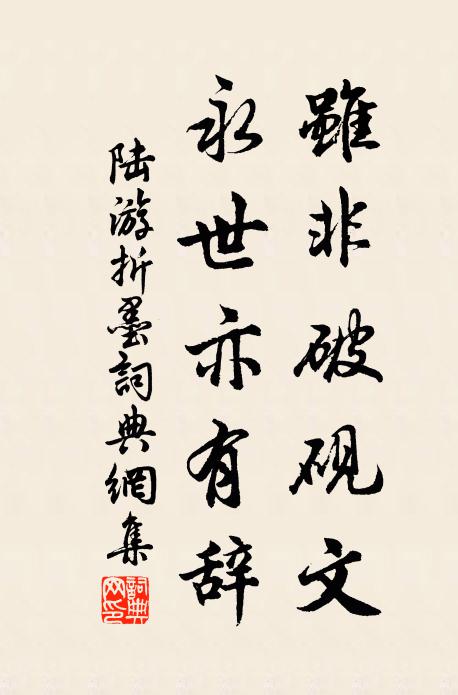 雖非破硯文
永世亦有辞
陸游折墨詞典網集
詞典网印